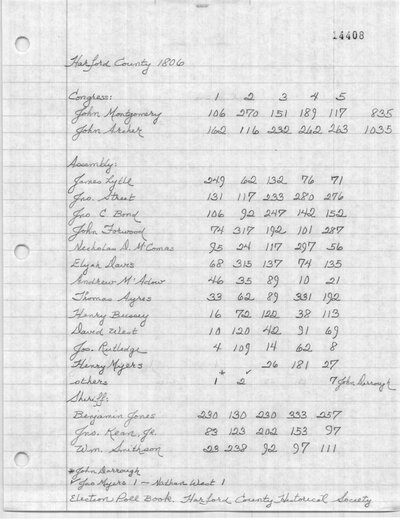 14408
Harford County 1806
Congress: 1 2 3 4 5
John Montgomery 106 270 151 189 117 835
John Archer 162 116 232 262 263 1035
Assembly:
James Lytle 249 62 132 76 71
Jno. Street 131 117 233 280 276
Jas C. Bond 106 92 247 142 152
John Forwood 74 317 192 101 287
Nicholas D. McComas 95 24 117 297 56
Elijah Davis 68 315 137 74 135
Andrew M'Adow 46 35 89 10 21
Thomas Ayres 33 62 89 331 192
Henry Bussey 16 72 122 38 113
David West 10 120 42 31 69
Jos. Rutledge 4 109 14 62 8
Henry Myers 26 181 27
others *1 ✓2 7 John Darrough
Sheriff:
Benjamin Jones 230 130 230 333 257
Jno. Kean, Jr. 83 123 202 153 97
Wm. Smithson 23 238 92 97 111
* John Darrough
✓ Jas Myers 1 - Nathan West 1
Election Poll Book. Harford County Historical Society